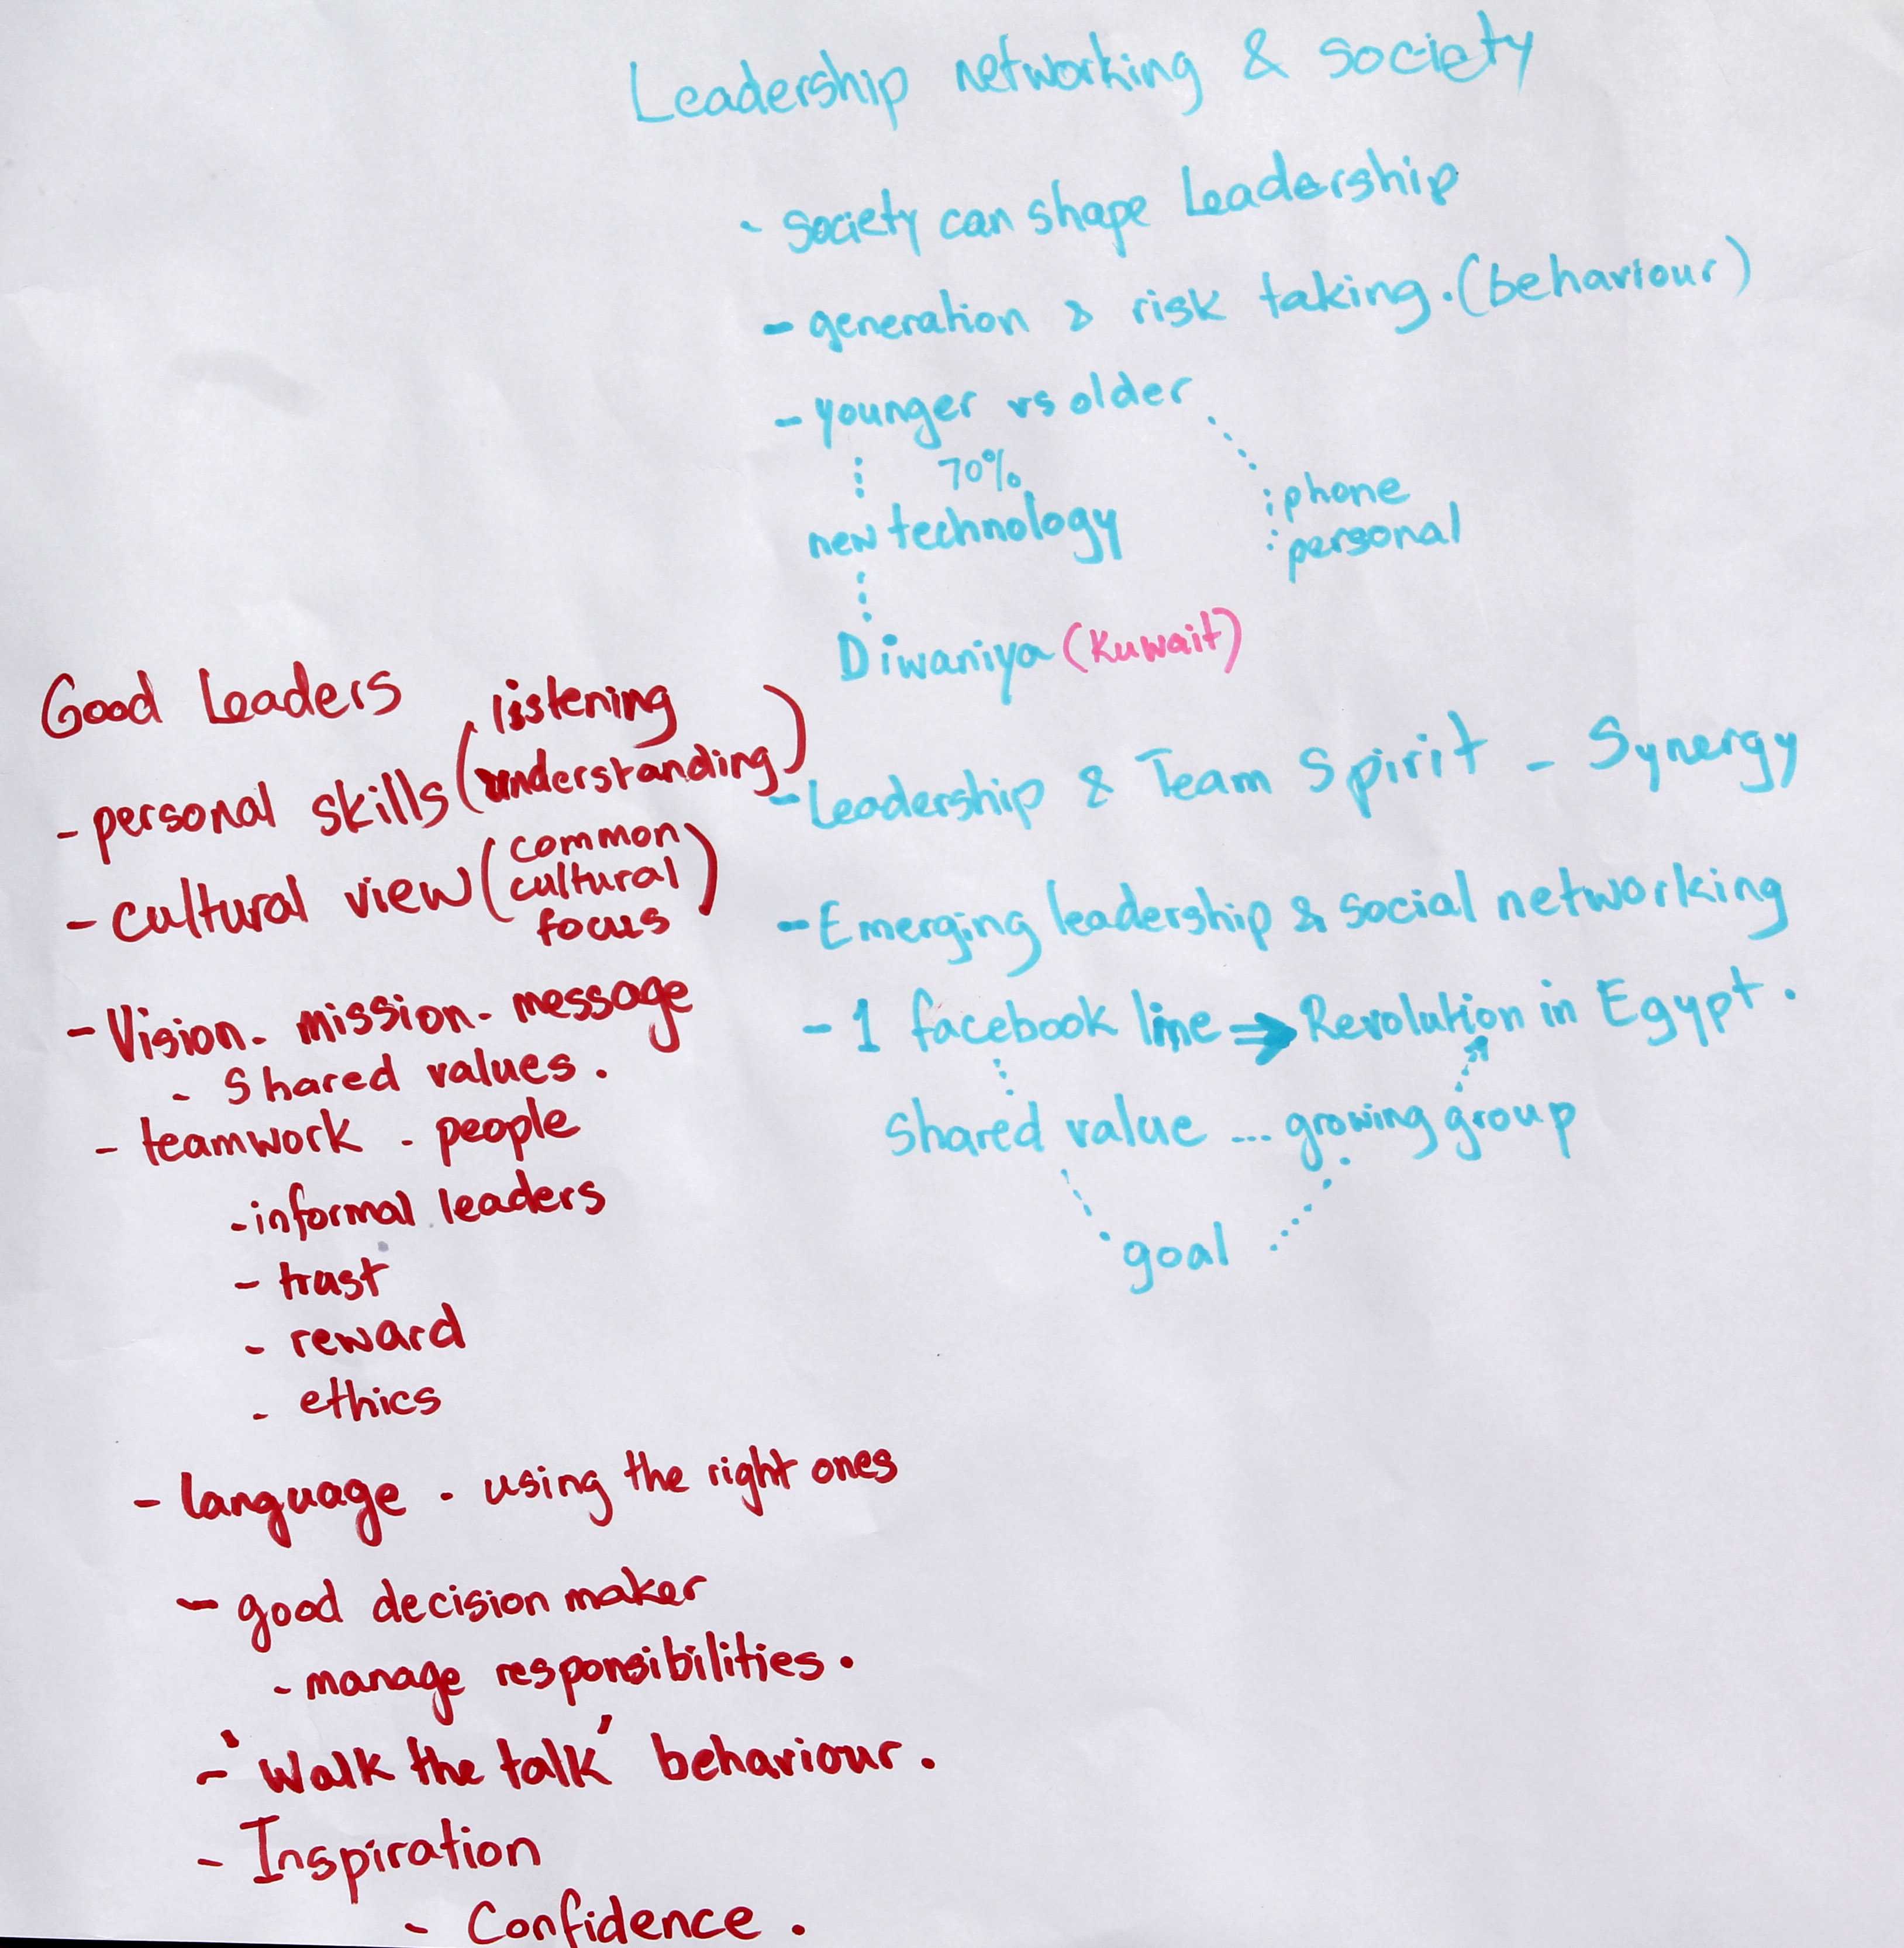 Leadership networking & society
- society can shape Leadership
- generation & risk taking. (behaviour)
- younger vs older
70%
new technology
phone
personal
Diwaniya (Kuwait)
- Leadership & Team Spirit - Synergy
- Emerging leadership & social networking
- 1 facebook line ⇒ Revolution in Egypt.
shared value ... growing group
goal
Good Leaders
- personal skills (listening
understanding)
- cultural view (common
cultural
focus)
- Vision - mission - message
- Shared values.
- teamwork - people
- informal leaders
- trust
- reward
- ethics
- language - using the right ones
- good decision maker
- manage responsibilities.
- 'Walk the talk' behaviour.
- Inspiration
- Confidence.